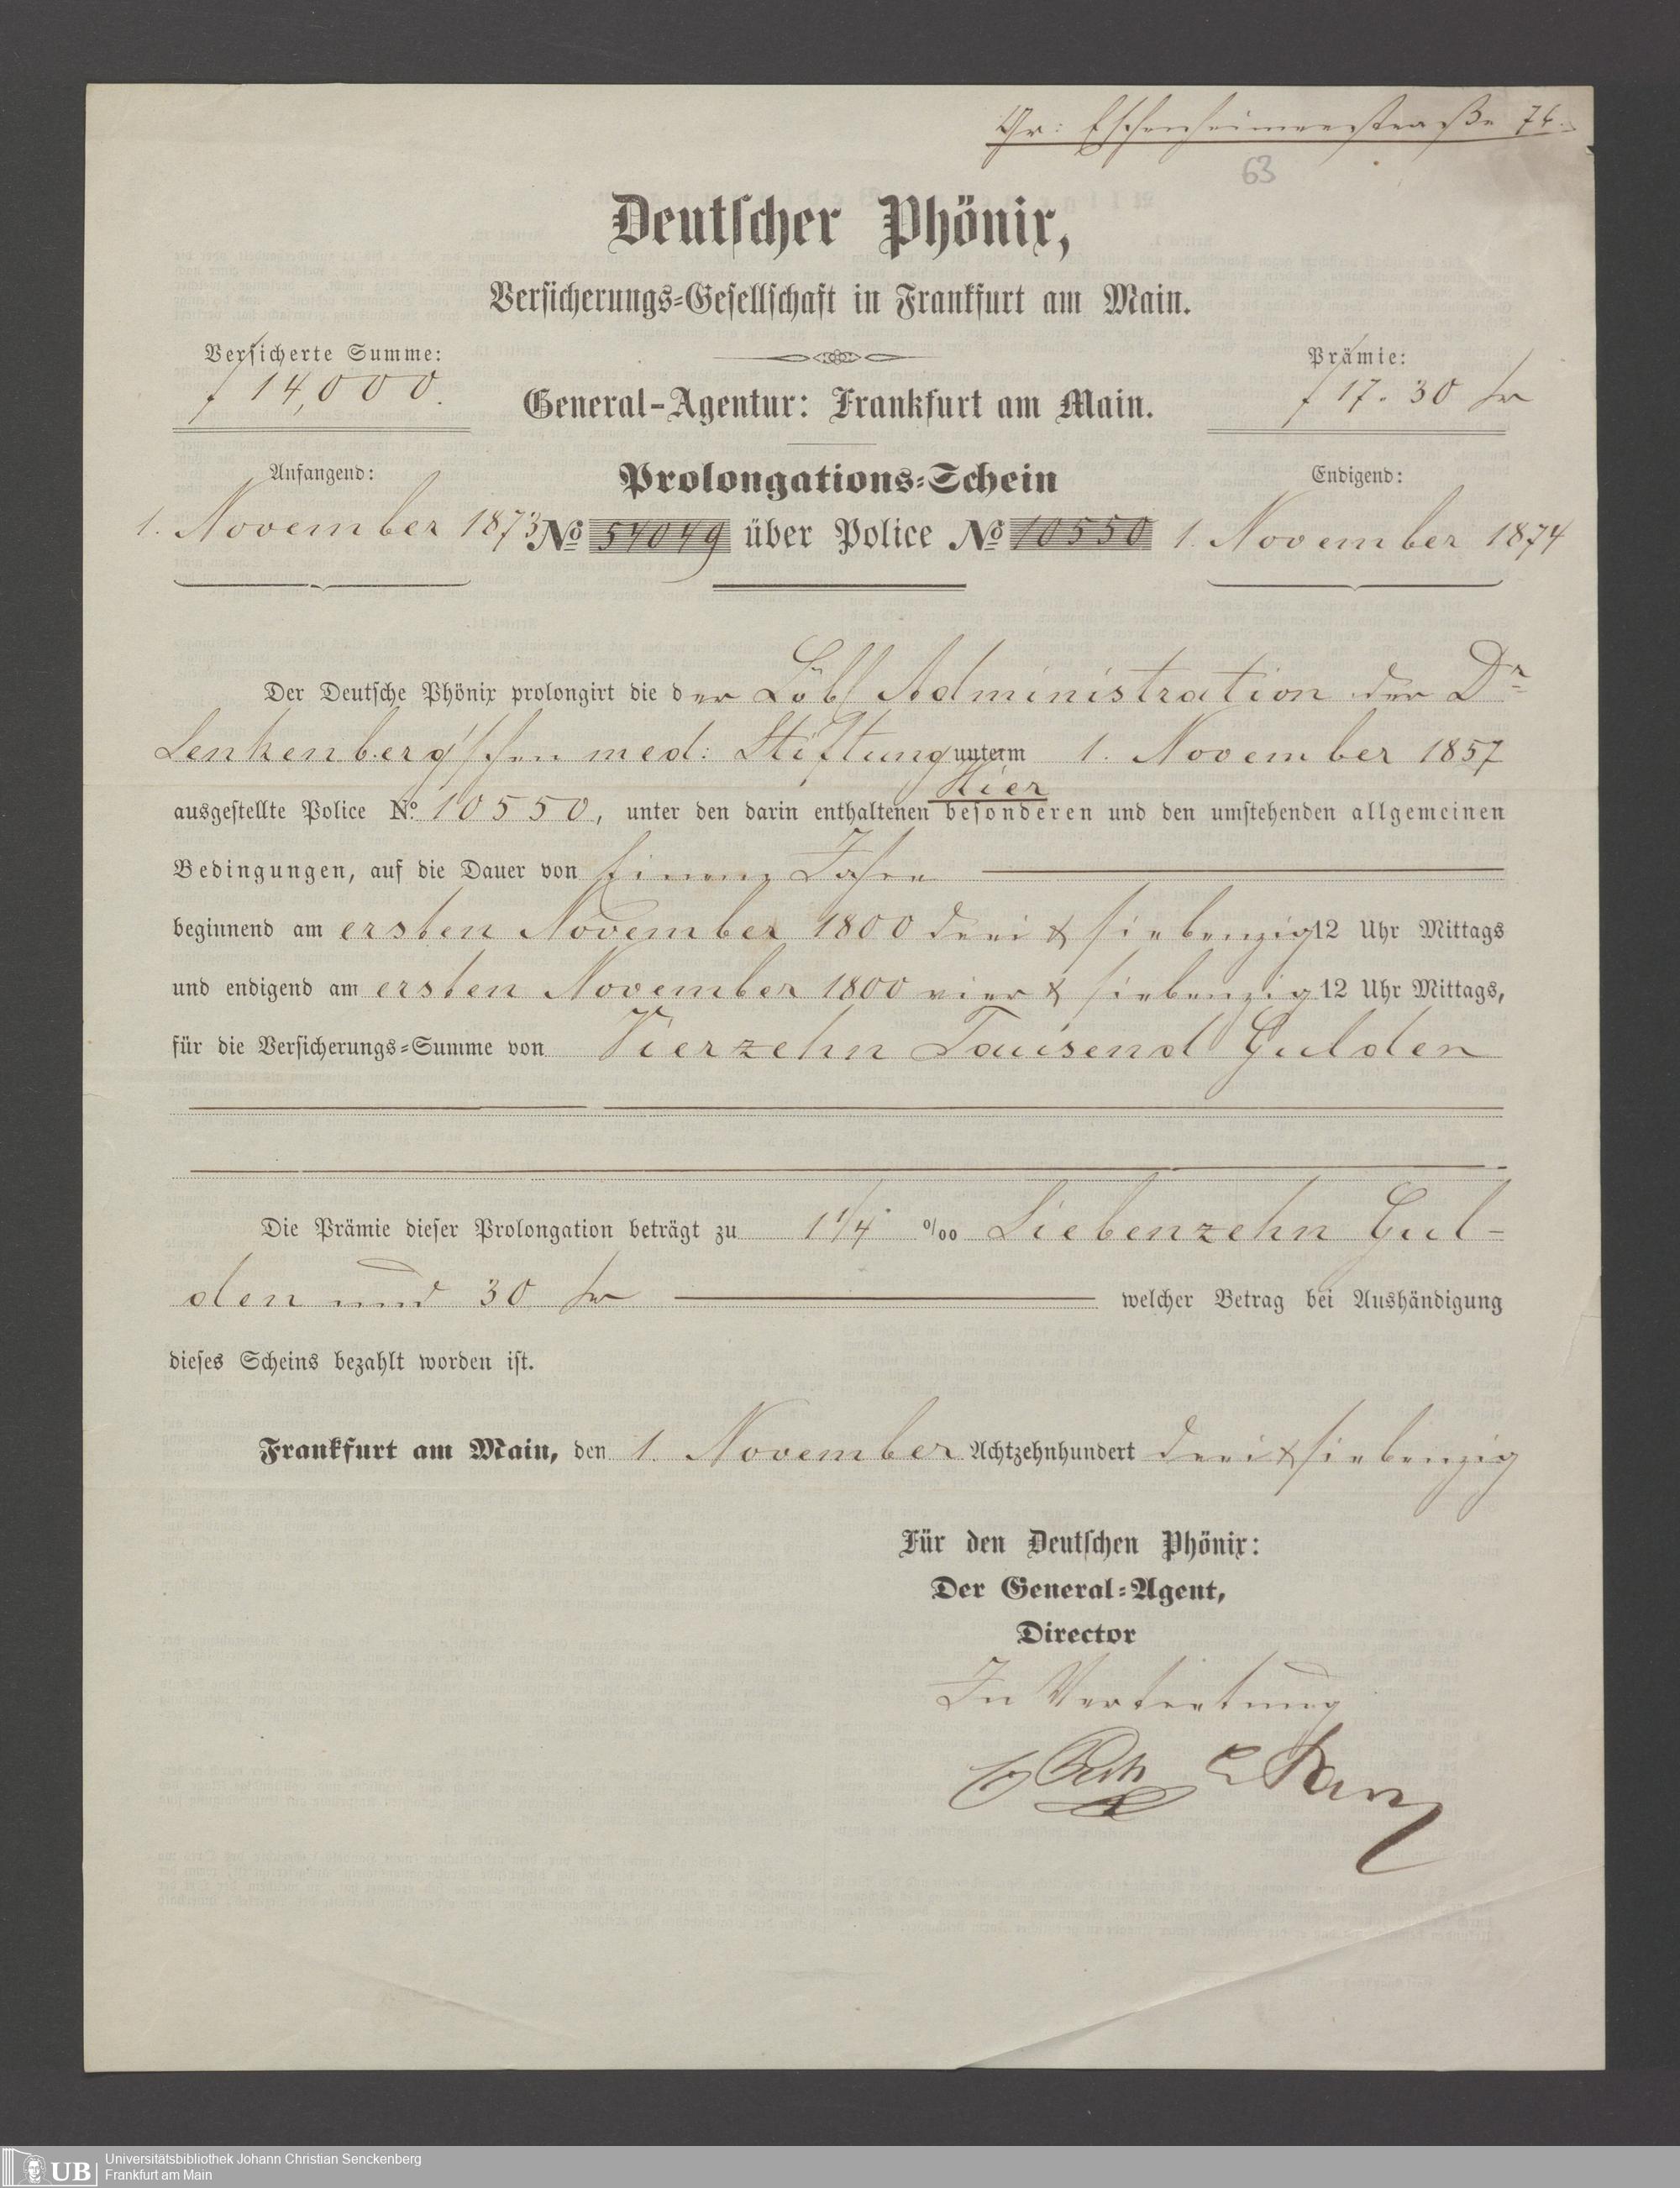 Gr: Eschenheimerstraße 74.
63
Deutscher Phönix,
Versicherungs-Gesellschaft in Frankfurt am Main.
Versicherte Summe:
f 14,000.
Prämie:
f 17. 30 kr
General-Agentur: Frankfurt am Main.
Anfangend:
1. November 1873
Prolongations-Schein
Endigend:
1. November 1874
No 54049 über Police No 10550
Der Deutsche Phönix prolongirt die der Löbl Administration der Dr
Senkenberg'schen med: Stiftung unterm 1. November 1857
Hier
ausgestellte Police No. 10550, unter den darin enthaltenen besonderen und den umstehenden allgemeinen
Bedingungen, auf die Dauer von Einem Jahre
beginnend am ersten November 1800 drei & siebenzig 12 Uhr Mittags
und endigend am ersten November 1800 vier & siebenzig 12 Uhr Mittags,
für die Versicherungs-Summe von Vierzehn Tausend Gulden
Die Prämie dieser Prolongation beträgt zu 1 1/4 ‰ Siebenzehn Gul-
den und 30 kr welcher Betrag bei Aushändigung
dieses Scheins bezahlt worden ist.
Frankfurt am Main, den 1. November Achtzehnhundert drei & siebenzig
Für den Deutschen Phönix:
Der General-Agent,
Director
In Vertretung
UB
Universitätsbibliothek Johann Christian Senckenberg
Frankfurt am Main